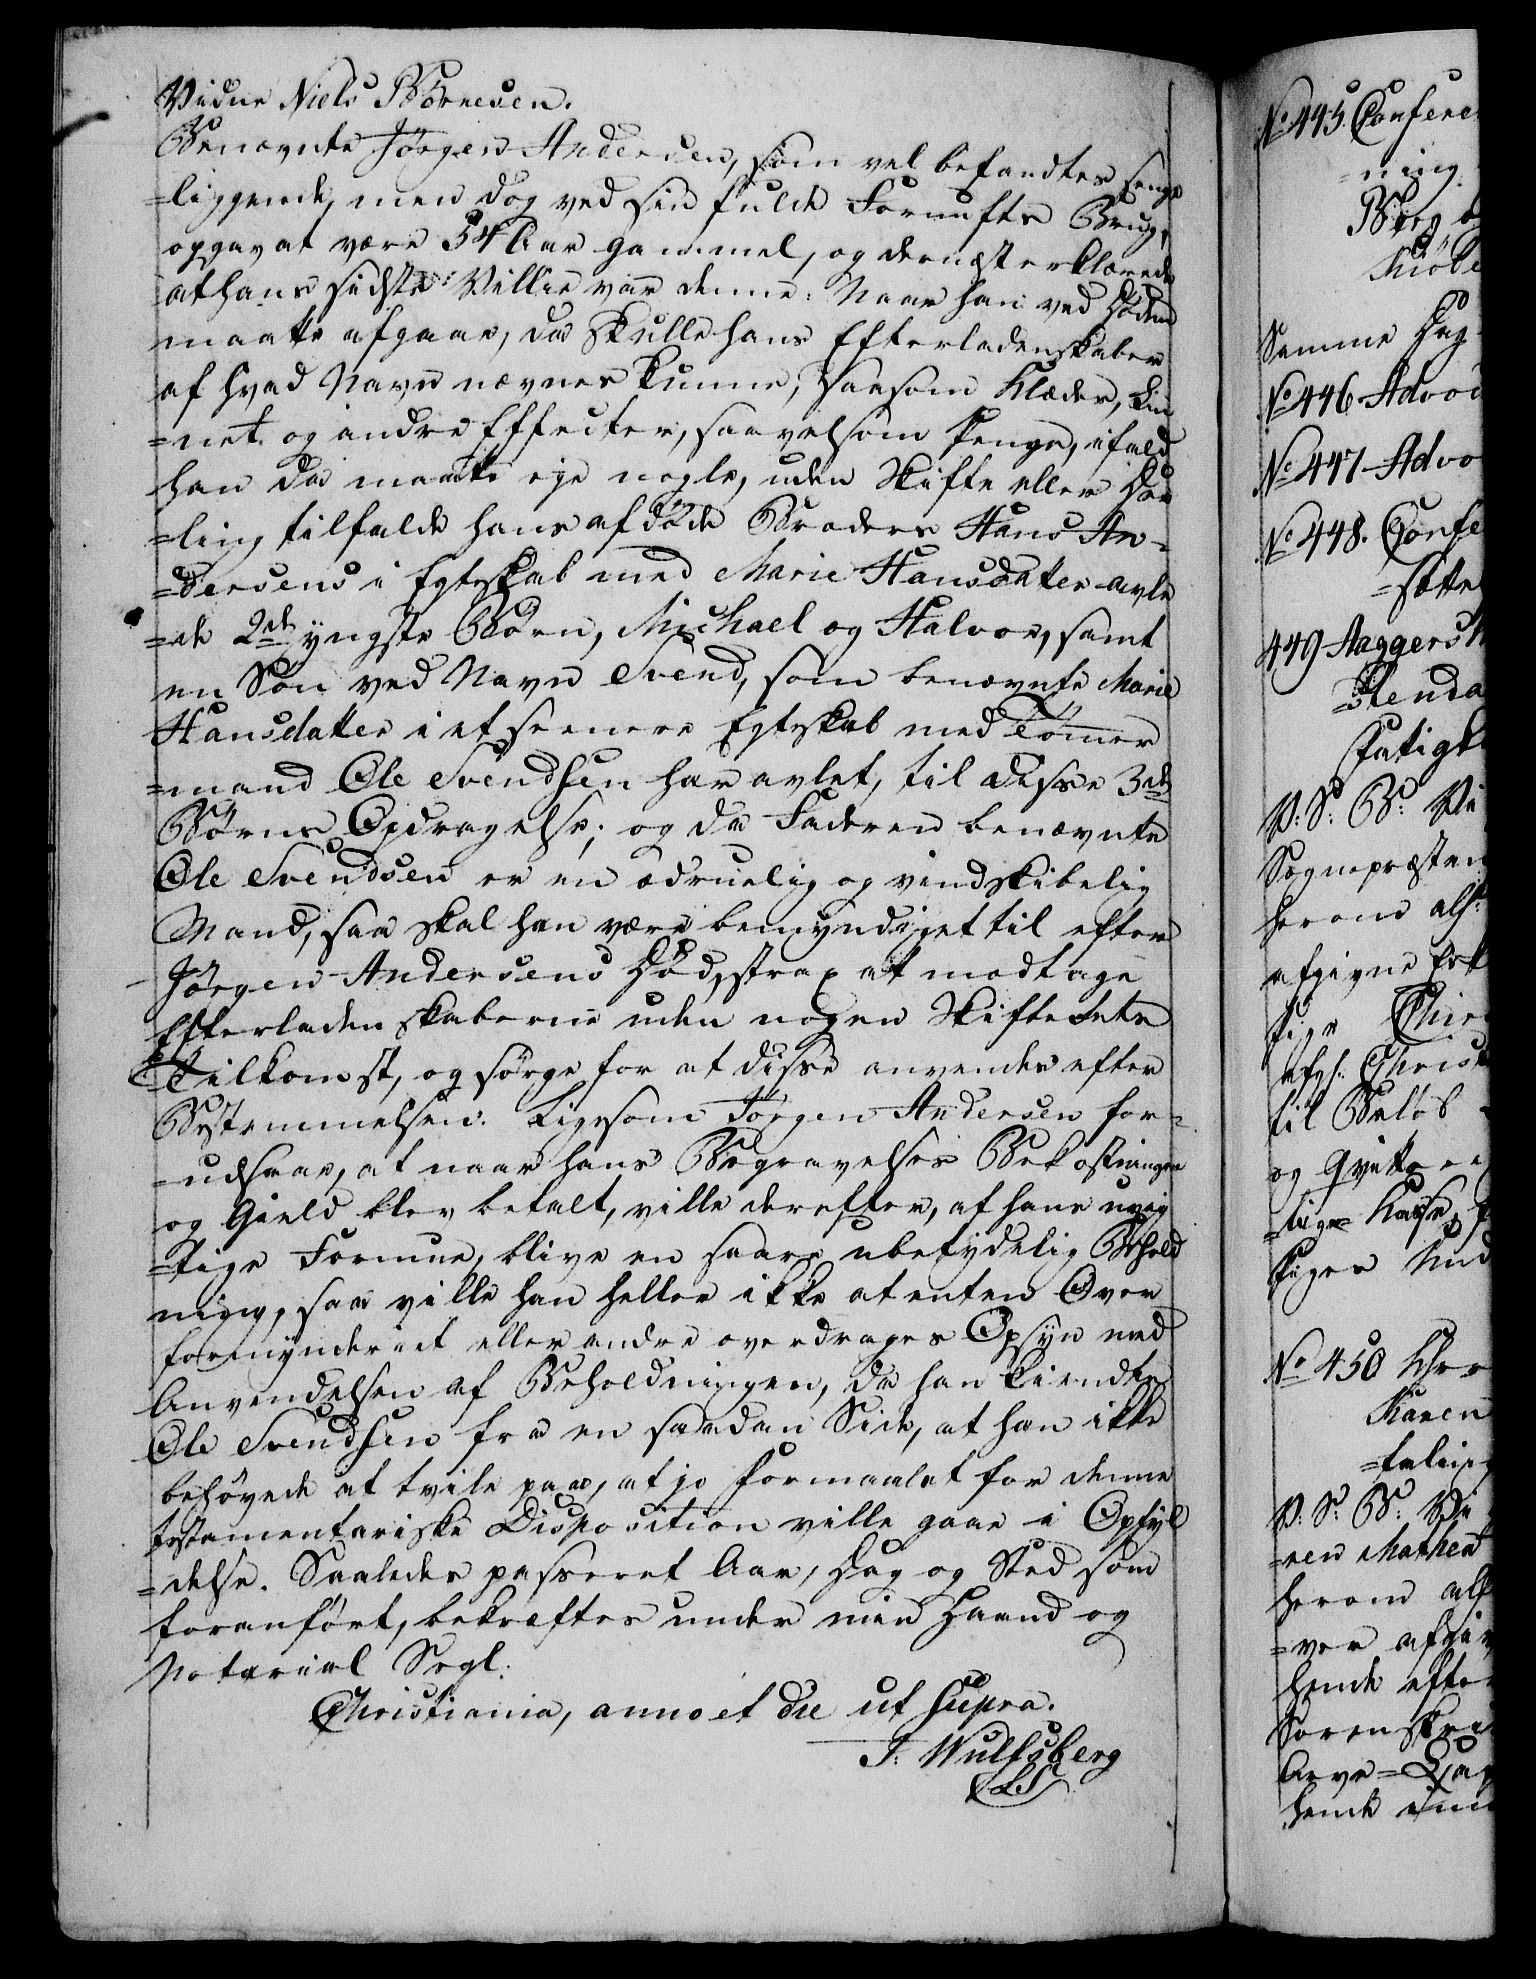 Vidne Niels Børnesen.
Benævnte Jörgen Andersen, som vel befandtes senge
=liggende, men dog ved sin fulde Fornufts Brug,
opgav at være 54 Aar gammel, og dernæst erklærede
at hans sidste Villie var denne: Naar han ved Døden
maatte afgaae, da skulle hans Efterladenskaber
af hvad Navn nævnes kunne, saasom Klæder, Lin
=net og andre Effecter, saavelsom Penge, ifald
han da maatte eje nogle, uden Skifte eller Dee
=ling tilfalde hans afdöde Broders Hans An-
=dersens i Egteskab med Marie Hansdatter avle
=de 2de yngste Börn, Michael og Halvor, samt
en Sön ved Navn Svend, som benævnte Marie
Hansdatter i et seenere Egteskab med Tömmer
=mand Ole Svendsen har avlet, til disse 3de
Börns Opdragelse; og da Faderen benævnte
Ole Svendsen er en ædruelig og vindskibelig
Mand, saa skal han være bemyndiget til efter
Jörgen Andersens Död, strax at modtage
Efterladenskaberne uden nogen Skifterets
Tilkomst, og sörge for at disse anvendes efter
Bestemmelsen. Ligesom Jörgen Andersen for-
=udsaae, at naar hans Begravelses Bekostninger
og Gield blev betalt, ville derefter, af hans uvig
=tige Formue, blive en saare ubetydelig Behold
ning, saa ville han heller ikke at enten Over
formynderiet eller andre overdrages Opsyn med
Anvendelsen af Beholdningen, da han kiendte
Ole Svendsen fra en saadan Side, at han ikke
behövede at tvile paa, at jo Formaalet for denne
testamentariske Disposition ville gaae i Opfyl
=delse. Saaledes passeret Aar, Dag og Sted som
foranfört, bekræftes under min Haand og
Notarial Segl.
Christiania, anno et die ut supra.
J. Wulfsberg
LS
No 445. Confere
=ning
Berg
Kiöbe
Samme Dag
No 446 Advoc
No 447 Advo
No 448. Confe
=sætte
449 Aaggers
=stenda
fatigk
V: S: B: Vi
Sognepræsten
herom als
afgivne Erk
Chri
afgl. Christ
til Belöb
og qvitte
=lige Kasse
No 450
Karen
=taling
V: S: B: Vi
=ren Mathea
herom als
=ver afgiv
hende efter
Sorenskri
Arve=
hende